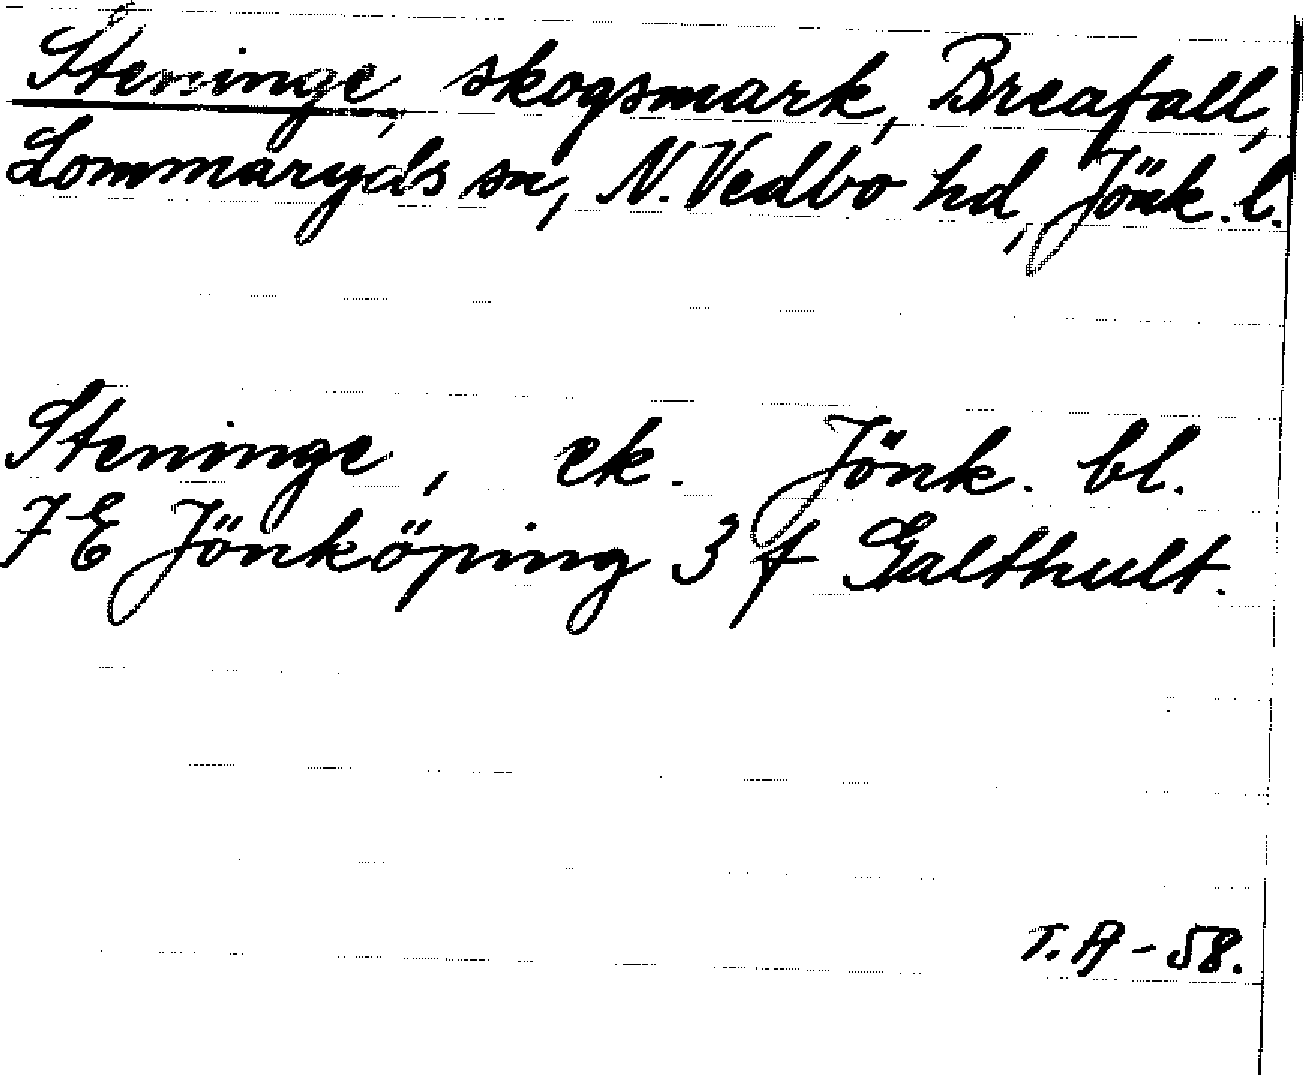 Steninge, skogsmark, Breafall,
Lommaryds sn, N. Vedbo hd, Jönk. l.
Steninge, ek. Jönk. bl.
7E Jönköping 3 f Galthult.
T. A - 58.